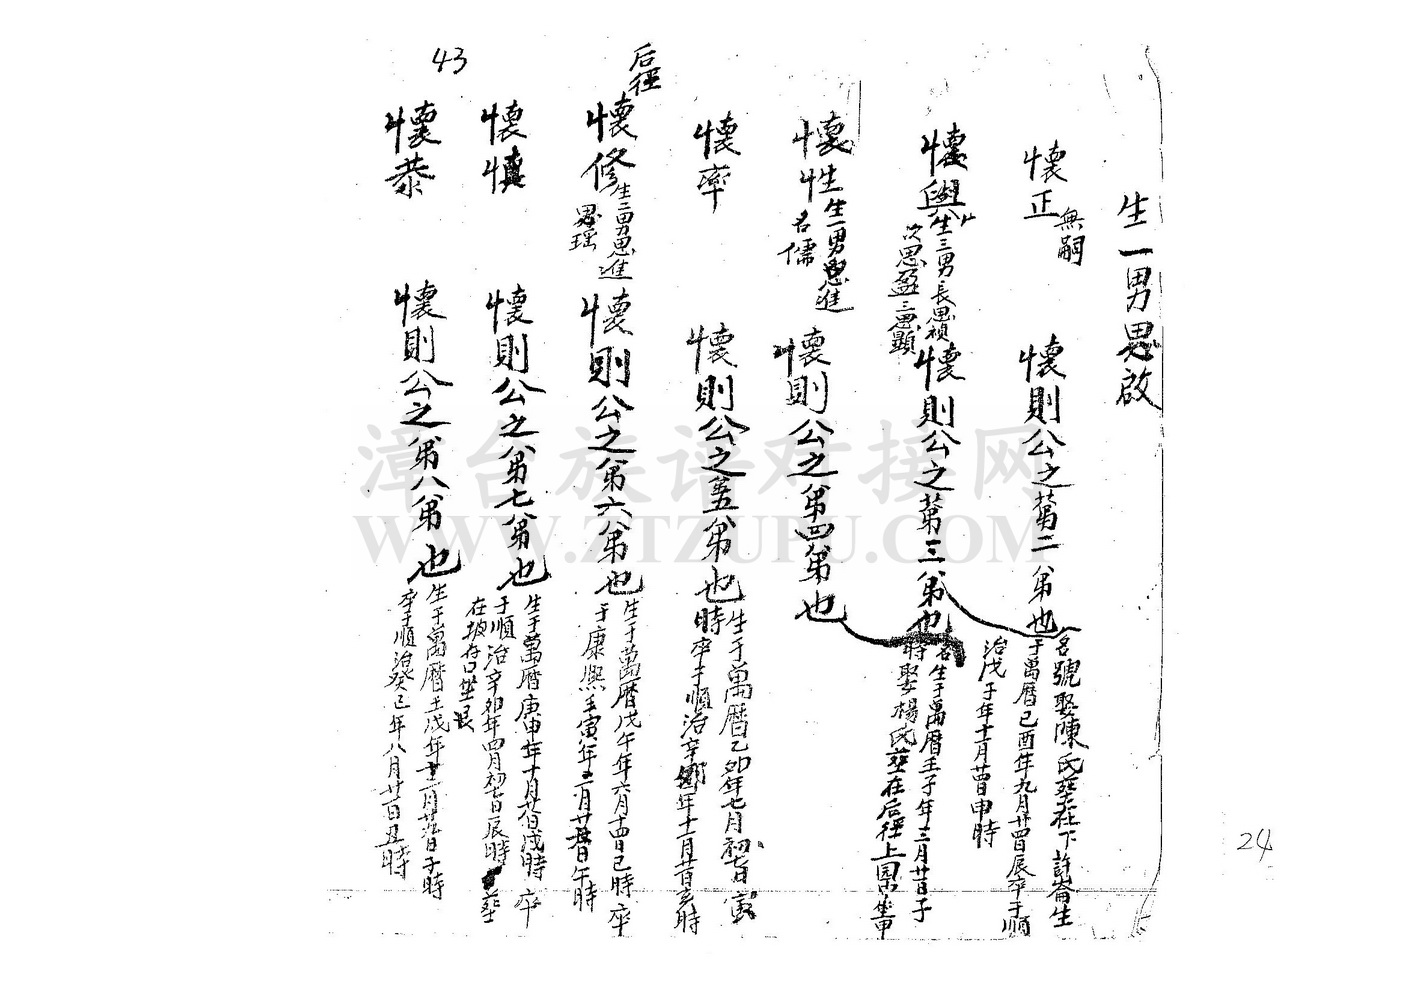 43
生一男思啟
懷正
無嗣
懷則公之第二弟也
名號娶陳氏葬在下許崙生
于萬曆己酉年九月廿四日辰卒于順
治戊子年十二月廿四日申時
懷與
生三男長思禎
次思盈三思顯
懷則公之第三弟也
名生于萬曆壬子年三月廿日子
時娶楊氏葬在后徑上園坐申
懷性
生一男思進
名儒
懷則公之第四弟也
懷率
懷則公之第五弟也
生于萬曆乙卯年七月初七日寅
時卒于順治辛卯年十一月廿日亥時
后徑
懷修
生二男思進
思瑶
懷則公之第六弟也
生于萬曆戊午年六月十四日巳時卒
于康熙壬寅年五月廿日午時
懷慎
懷則公之第七弟也
生于萬曆庚申年十月廿日戌時卒
于順治辛卯年四月初七日辰時葬
在坡存口坐艮
懷恭
懷則公之第八弟也
生于萬曆壬戌年十二月廿九日子時
卒于順治癸巳年八月廿一日丑時
24
漳台族谱对接网
WWW.ZTZUPU.COM